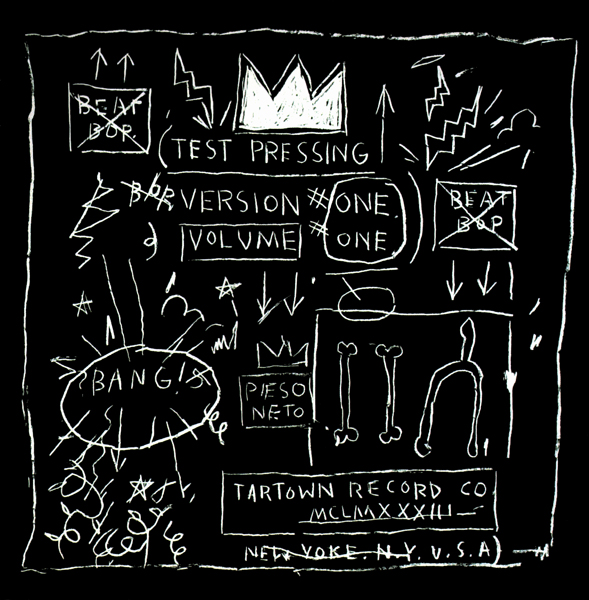 BEAT
BOP.
(TEST PRESSING
BOP VERSION # ONE.
VOLUME # ONE
BEAT
BOP
BANG!
PIESO
NETO
TARTOWN RECORD CO
MCLMXXXIII
NEW YOKE. N.Y. U.S.A)